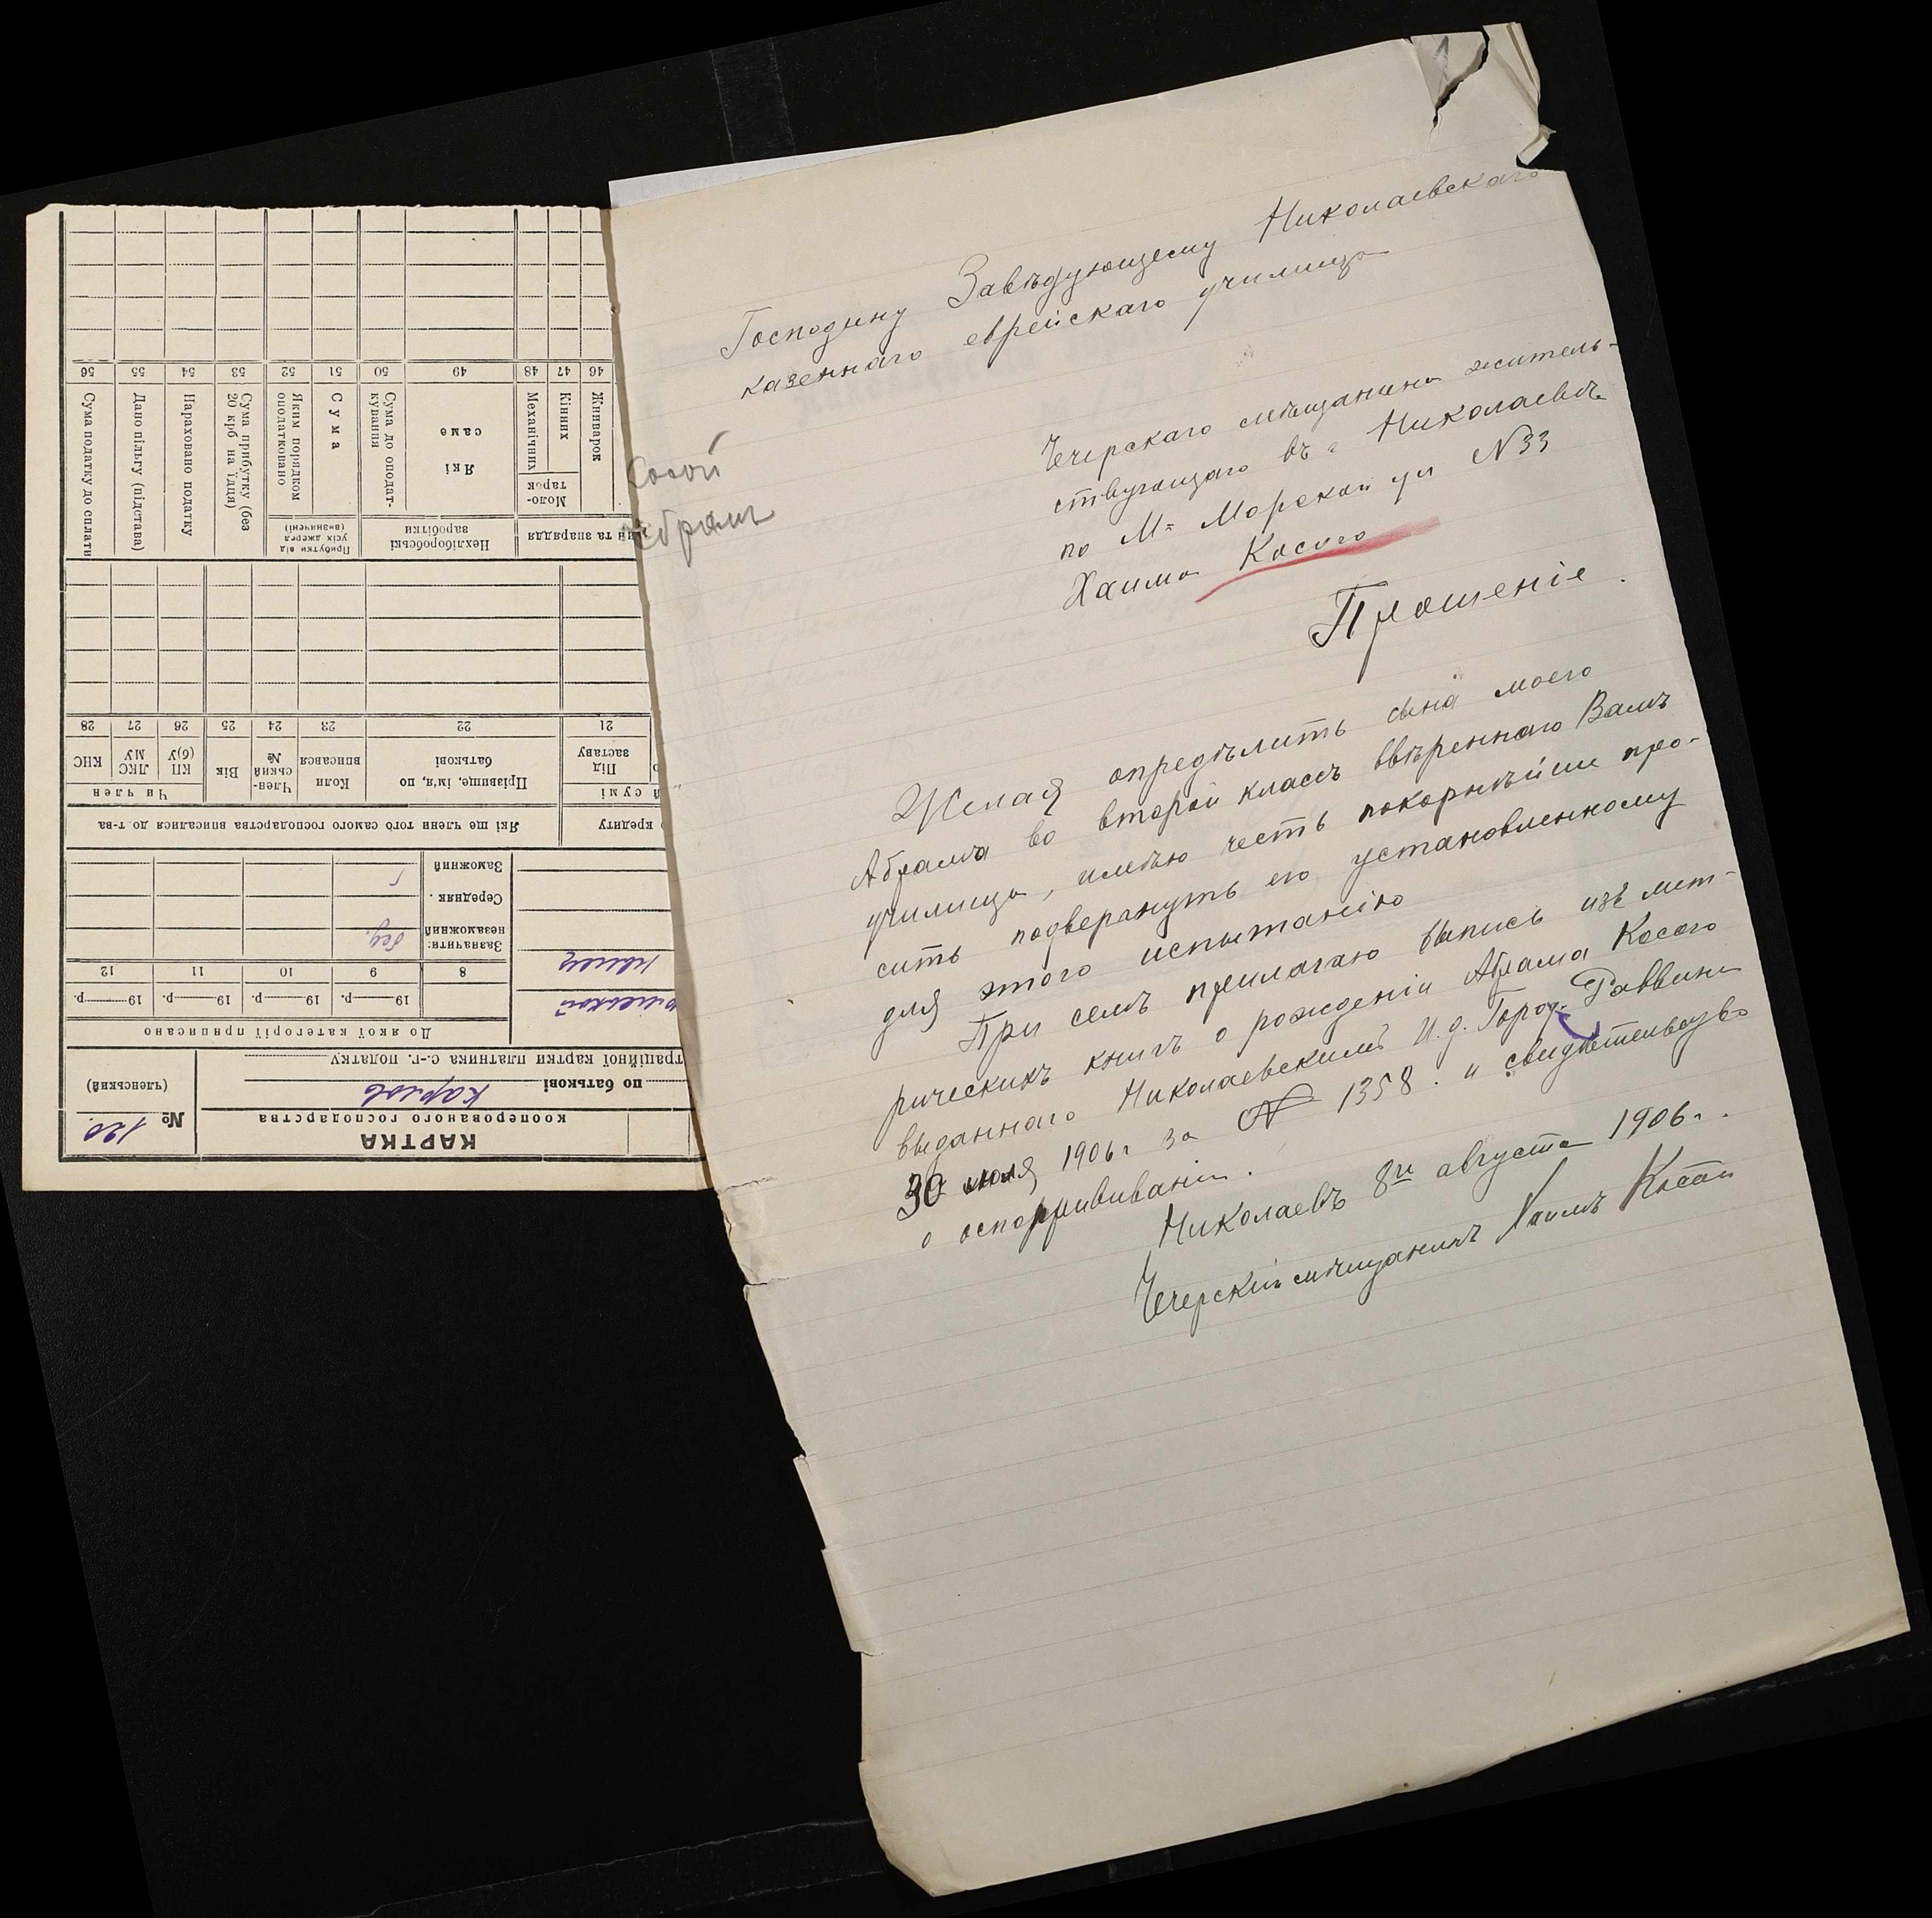 1
Господину Завѣдующему Николаевскаго
казеннаго еврейскаго училища
Чечерскаго мѣщанина житель-
ствующаго въ г Николаевѣ
по М= Морской ул N33
Хаима Косого
Косой
Абрамъ
Прошеніе.
Желая опредѣлить сына моего
Абрама во второй классъ ввѣреннаго Вамъ
училища, имѣю честь покорнѣйше про-
сить подвергнуть его установленному
для этого испытанію
При семъ прилагаю выпись изъ мет-
рическихъ книгъ о рожденіи Абрама Косого
выданнаго Николаевскимъ И.д. Город. Раввина
30 июля 1906г за № 1358. и свидѣтельство
о оспопрививаніи.
Николаевъ 8го августа 1906г.
Чечерскій мѣщанинъ Хаимъ Косой
КАРТКА
кооперованого господарства
№ 120
(членський)
по батькові Карлов
траційної картки платника с.-г. податку
До якої категорії приписано
19 р. 19 р. 19 р. 19 р.
8 9 10 11 12
Зазначити:
незаможний бед.
Середняк
Заможний
кредиту
Які ще члени того самого господарства вписалися до т-ва
й сумі
Під заставу
Прізвище, ім'я, по батькові
Коли вписався
Член-ський №
Вік
Чи член
КП(б)У
ЛКСМУ
КНС
21 22 23 24 25 26 27 28
ни та знаряддя
Нехліборобські заробітки
Прибутки від усіх джерел (визначені)
Жниварок
Кінних
Моло-тарок
Механічних
Які саме
Сума до оподат-кування
Сума
Яким порядком оподатковано
Сума прибутку (без 20 крб на їдця)
Нараховано податку
Дано пільгу (підстава)
Сума податку до сплати
46 47 48 49 50 51 52 53 54 55 56